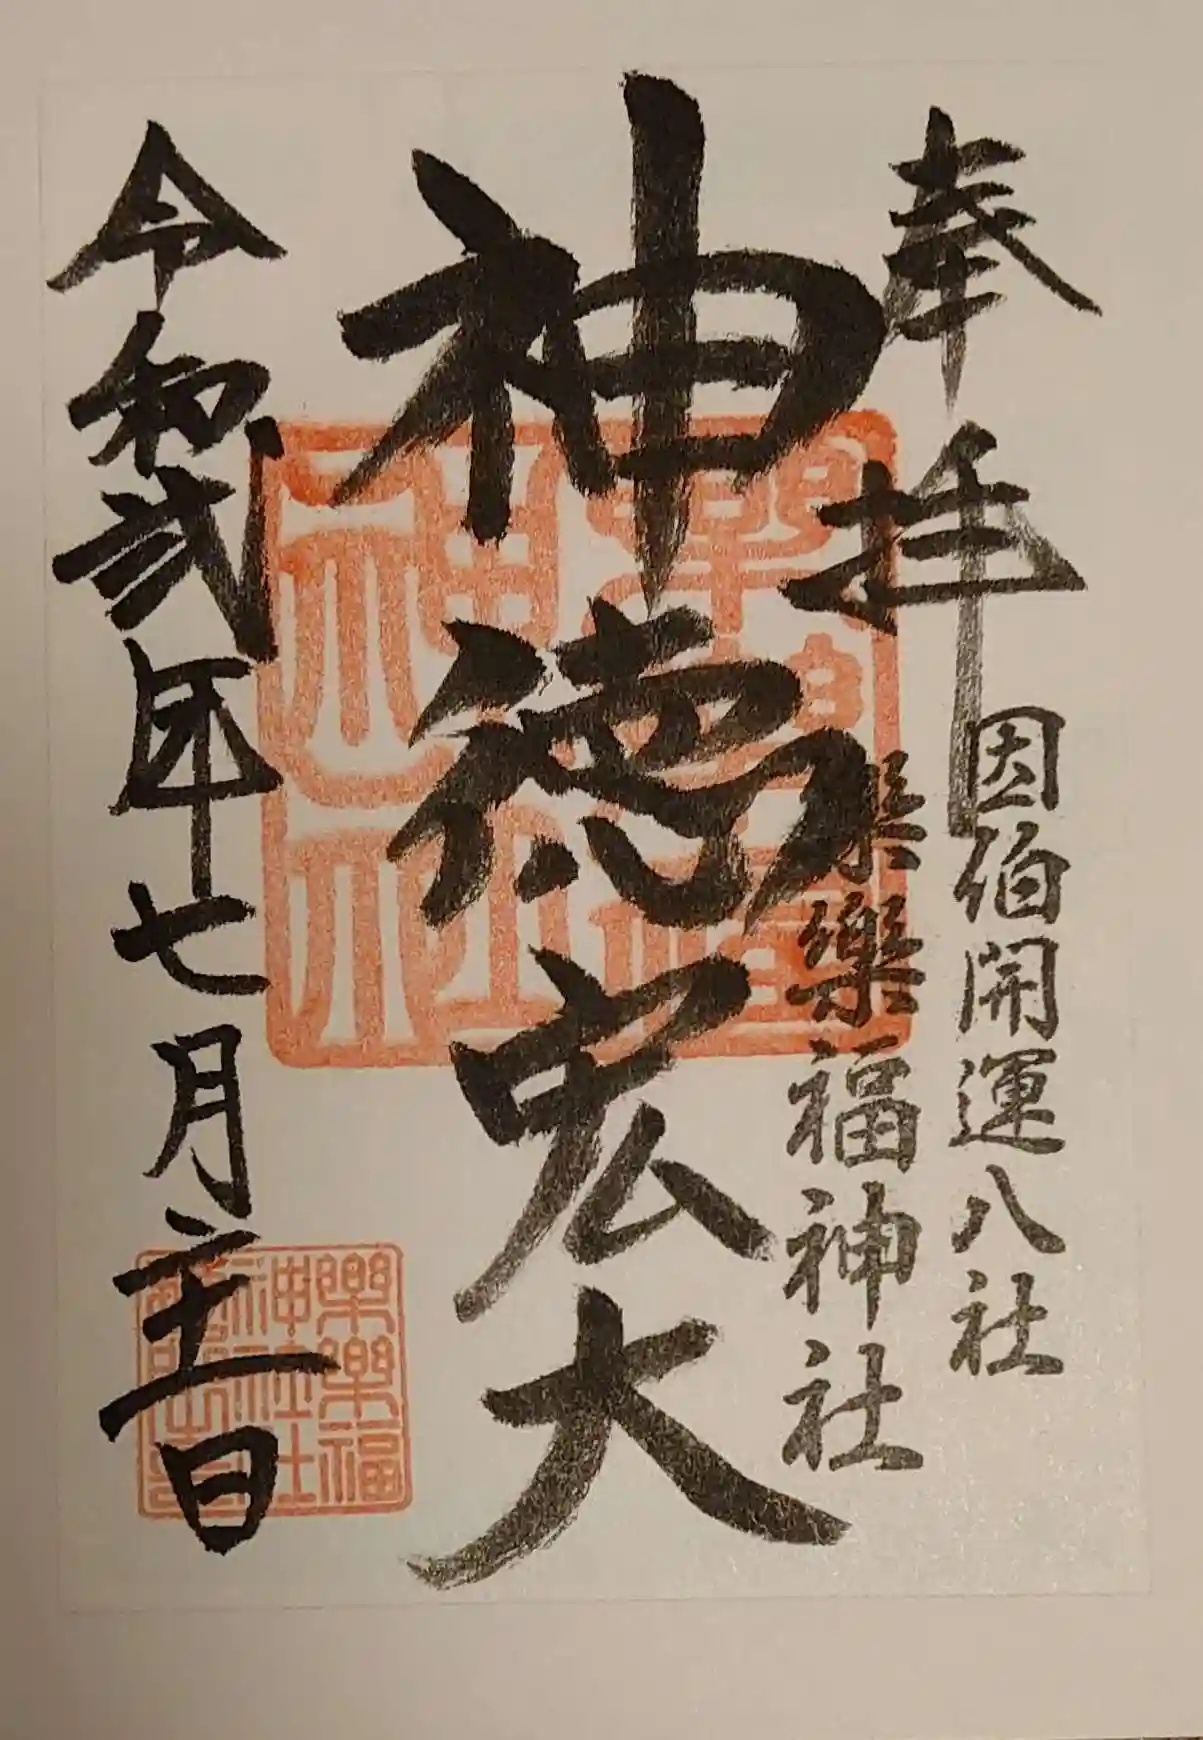 奉拝
因伯開運八社
樂樂福神社
神徳宏大
令和弐年七月
日
樂樂福
神社社